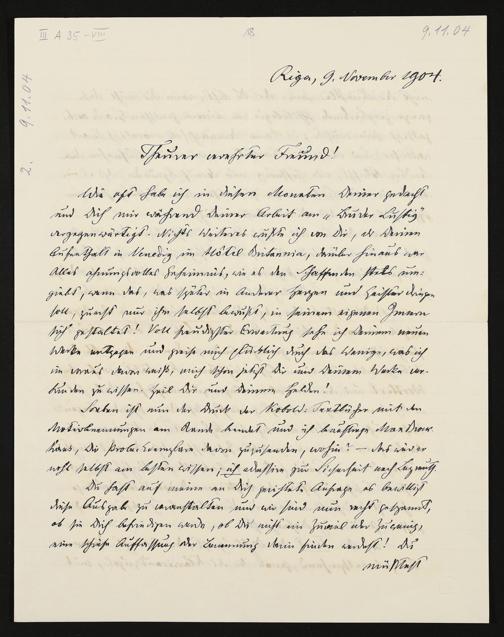 III A 35-VIII
9.11.04
2. 9.11.04
Riga, 9. November 1904.
Theurer verehrter Freund!
Wie oft habe ich in diesen Monaten Deiner gedacht
und Dich mir während Deiner Arbeit am „Bruder Lustig"
vergegenwärtigt. Nichts Weiteres wußte ich von Dir, als Deinen
Aufenthalt in Venedig im Hôtel Britannia, darüber hinaus war
Alles ahnungsvolles Geheimnis, wie es den Schaffenden stets um-
giebt, wenn das, was später in Anderer Herzen und Geister dringen
soll, zunächst nur ihm selbst bewußt, in seinem eigenen Innern
sich gestaltet! Voll freudigster Erwartung sehe ich Deinem neuen
Werke entgegen und preise mich glücklich durch das Wenige, was ich
im voraus davon weiß, mich schon jetzt Dir und Deinem Werke ver-
bunden zu wissen. Heil Dir und Deinem Helden!
Soeben ist nun der Druck der Kobold-Textbücher mit den
Motivbenennungen am Rande beendet und ich beauftrage Max Brock-
haus, Dir Probeexemplare davon zuzusenden, wohin? – das wird er
wohl selbst am besten wissen; ich adressire zur Sicherheit nach Bayreuth.
Du hast auf meine an Dich gerichtete Anfrage es bewilligt
diese Ausgabe zu veranstalten und wir sind nun recht gespannt,
ob sie Dich befriedigen werde, ob Du nicht ein Zuviel oder Zuwenig,
eine schiefe Auffassung der Benennung darin finden werdest! Du
müßtest